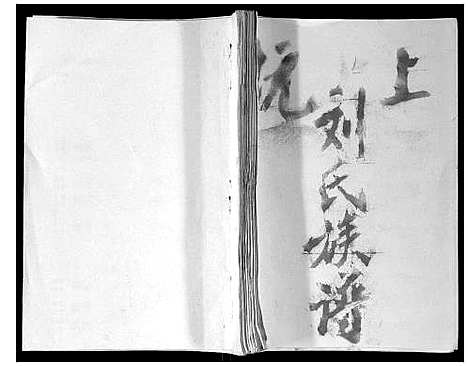 上
刘氏族谱